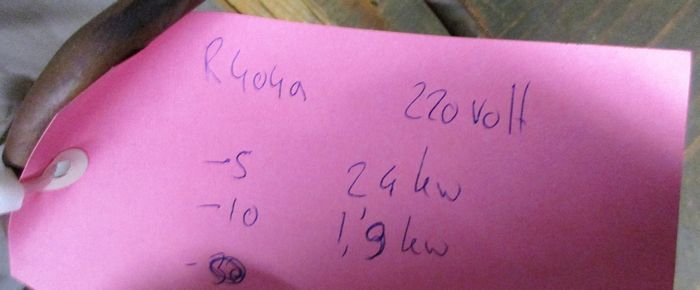 R404a 220 volt
-5 24 kw
-10 1,9 kw